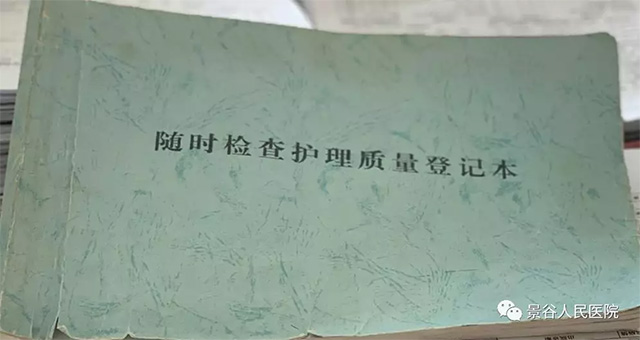 随时检查护理质量登记本
景谷人民医院